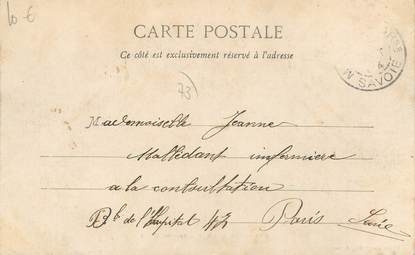 10 €
CARTE POSTALE
Ce côté est exclusivement réservé à l'adresse
73)
SAVOIE
Mademoiselle Jeanne
Mallédant infirmière
a la consultation
Bd de l'Hopital 47 Paris Seine